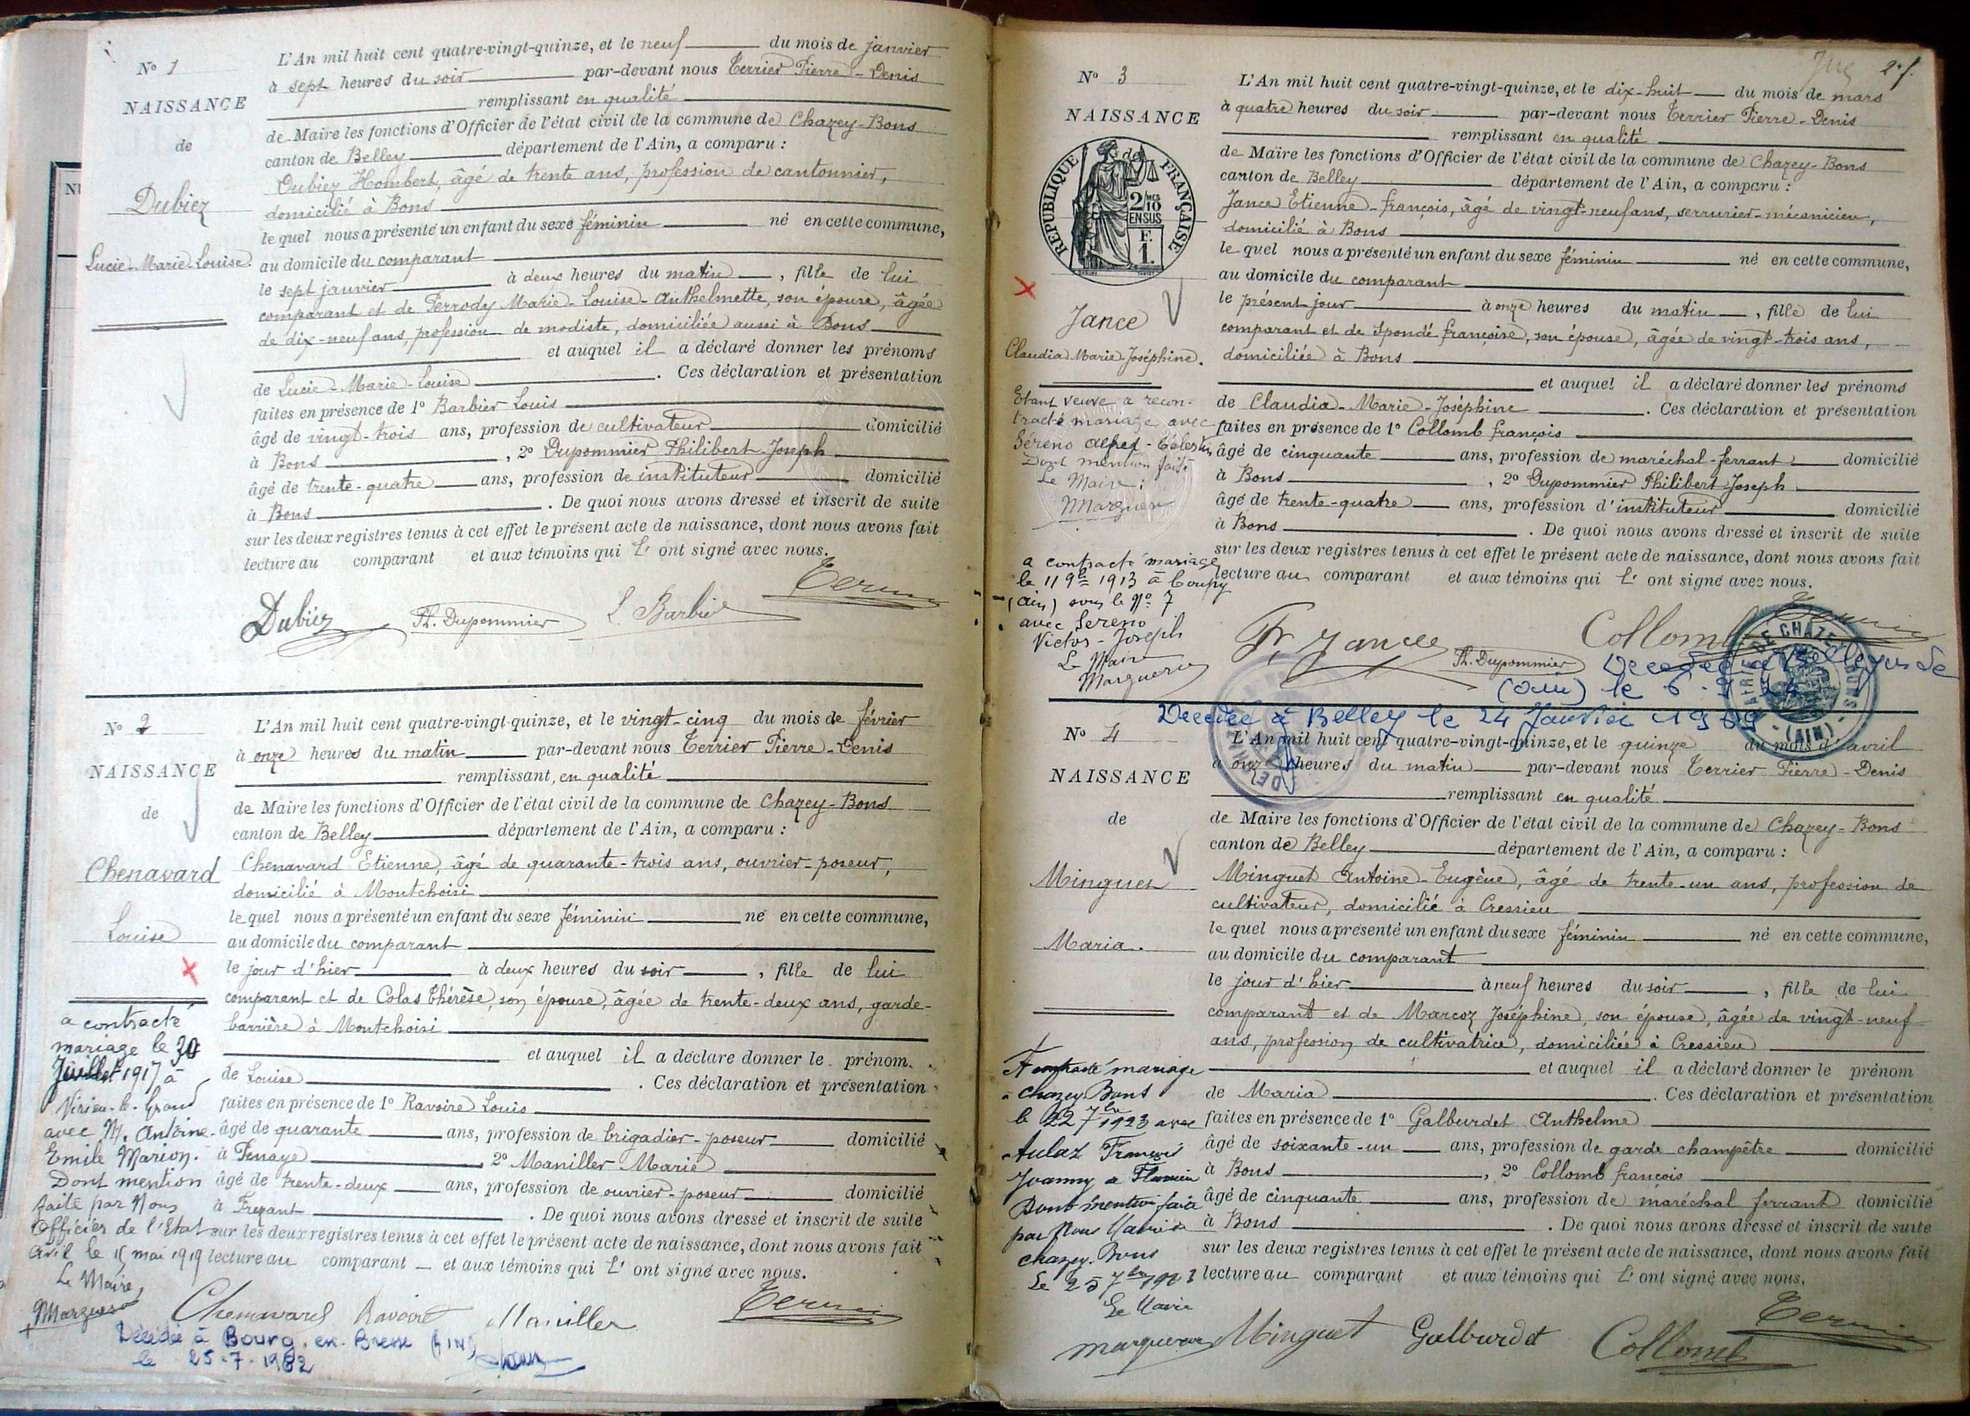 N° 1
NAISSANCE
de
Dubiez
Lucie-Marie-Louise
L'An mil huit cent quatre-vingt-quinze, et le neuf du mois de janvier
à sept heures du soir par-devant nous Terrier Pierre-Denis
remplissant en qualité
de Maire les fonctions d'Officier de l'état civil de la commune de Chazey-Bons
canton de Belley département de l'Ain, a comparu :
Dubiez Hombert, âgé de trente ans, profession de cantonnier,
domicilié à Bons
lequel nous a présenté un enfant du sexe féminin né en cette commune,
au domicile du comparant
le sept janvier à deux heures du matin, fille de lui
comparant et de Perrody Marie-Louise-Anthelmette, son épouse, âgée
de dix-neuf ans, profession de modiste, domiciliée aussi à Bons
et auquel il a déclaré donner les prénoms
de Lucie-Marie-Louise. Ces déclaration et présentation
faites en présence de 1° Barbier Louis
âgé de vingt-trois ans, profession de cultivateur domicilié
à Bons, 2° Dupommier Philibert-Joseph
âgé de trente-quatre ans, profession de instituteur domicilié
à Bons. De quoi nous avons dressé et inscrit de suite
sur les deux registres tenus à cet effet le présent acte de naissance, dont nous avons fait
lecture au comparant et aux témoins qui l'ont signé avec nous.
Dubiez Ph. Dupommier L. Barbier Terrier
N° 2
NAISSANCE
de
Chenavard
Louise
L'An mil huit cent quatre-vingt-quinze, et le vingt-cinq du mois de février
à onze heures du matin par-devant nous Terrier Pierre-Denis
remplissant en qualité
de Maire les fonctions d'Officier de l'état civil de la commune de Chazey-Bons
canton de Belley département de l'Ain, a comparu :
Chenavard Etienne, âgé de quarante-trois ans, ouvrier-poseur,
domicilié à Montchoisi
lequel nous a présenté un enfant du sexe féminin né en cette commune,
au domicile du comparant
le jour d'hier à deux heures du soir, fille de lui
comparant et de Colas Thérèse, son épouse, âgée de trente-deux ans, garde-
barrière à Montchoisi
et auquel il a déclaré donner le prénom
de Louise. Ces déclaration et présentation
faites en présence de 1° Ravoire Louis
âgé de quarante ans, profession de brigadier-poseur domicilié
à Penaye, 2° Maniller Marie
âgé de trente-deux ans, profession de ouvrier-poseur domicilié
à Frezant. De quoi nous avons dressé et inscrit de suite
sur les deux registres tenus à cet effet le présent acte de naissance, dont nous avons fait
lecture au comparant et aux témoins qui l'ont signé avec nous.
Chenavard Ravoire Maniller Terrier
a contracté
mariage le 30
Juillet 1917 à
Virieu-le-Grand
avec M. Antoine-
Emile Marion.
Dont mention
faite par Nous
Officier de l'Etat
Civil le 15 mai 1919
Le Maire,
Décédée à Bourg-en-Bresse (AIN)
le 25-7-1982
2 f.
N° 3
NAISSANCE
de
REPUBLIQUE FRANÇAISE
2/10 EN SUS
F. 1.
Jance
Claudia-Marie-Joséphine.
L'An mil huit cent quatre-vingt-quinze, et le dix-huit du mois de mars
à quatre heures du soir par-devant nous Terrier Pierre-Denis
remplissant en qualité
de Maire les fonctions d'Officier de l'état civil de la commune de Chazey-Bons
canton de Belley département de l'Ain, a comparu :
Jance Etienne-François, âgé de vingt-neuf ans, serrurier-mécanicien,
domicilié à Bons
lequel nous a présenté un enfant du sexe féminin né en cette commune,
au domicile du comparant
le présent jour à onze heures du matin, fille de lui
comparant et de Spondé Françoise, son épouse, âgée de vingt-trois ans,
domiciliée à Bons
et auquel il a déclaré donner les prénoms
de Claudia-Marie-Joséphine. Ces déclaration et présentation
faites en présence de 1° Collomb François
âgé de cinquante ans, profession de maréchal-ferrant domicilié
à Bons, 2° Dupommier Philibert-Joseph
âgé de trente-quatre ans, profession d'instituteur domicilié
à Bons. De quoi nous avons dressé et inscrit de suite
sur les deux registres tenus à cet effet le présent acte de naissance, dont nous avons fait
lecture au comparant et aux témoins qui l'ont signé avec nous.
Fr. Jance Ph. Dupommier Collomb Terrier
Etant veuve a recon-
tracté mariage avec
Séreno Alfred-Célestin
Dont mention faite
Le Maire :
a contracté mariage
le 11 9bre 1913 à Coupy
(Ain) sous le N° 7
avec Sereno
Victor-Joseph
Le Maire
Décédée à
(Ain) le 6
Décédée à Belley le 24 Janvier 19
(AIN)
N° 4
NAISSANCE
de
Minguet
Maria.
L'An mil huit cent quatre-vingt-quinze, et le quinze du mois d'avril
à onze heures du matin par-devant nous Terrier Pierre-Denis
remplissant en qualité
de Maire les fonctions d'Officier de l'état civil de la commune de Chazey-Bons
canton de Belley département de l'Ain, a comparu :
Minguet Antoine-Eugène, âgé de trente-un ans, profession de
cultivateur, domicilié à Cressieu
lequel nous a présenté un enfant du sexe féminin né en cette commune,
au domicile du comparant
le jour d'hier à neuf heures du soir, fille de lui
comparant et de Marcoz Joséphine, son épouse, âgée de vingt-neuf
ans, profession de cultivatrice, domiciliée à Cressieu
et auquel il a déclaré donner le prénom
de Maria. Ces déclaration et présentation
faites en présence de 1° Galburdet Anthelme
âgé de soixante-un ans, profession de garde champêtre domicilié
à Bons, 2° Collomb François
âgé de cinquante ans, profession de maréchal ferrant domicilié
à Bons. De quoi nous avons dressé et inscrit de suite
sur les deux registres tenus à cet effet le présent acte de naissance, dont nous avons fait
lecture au comparant et aux témoins qui l'ont signé avec nous.
Minguet Galburdet Collomb Terrier
A contracté mariage
à Chazey Bons
le 22 7bre 1923 avec
Aulaz François
Joanny
Dont mention faite
par Nous Maire de
Chazey-Bons
Le 25 7bre 1923
Le Maire